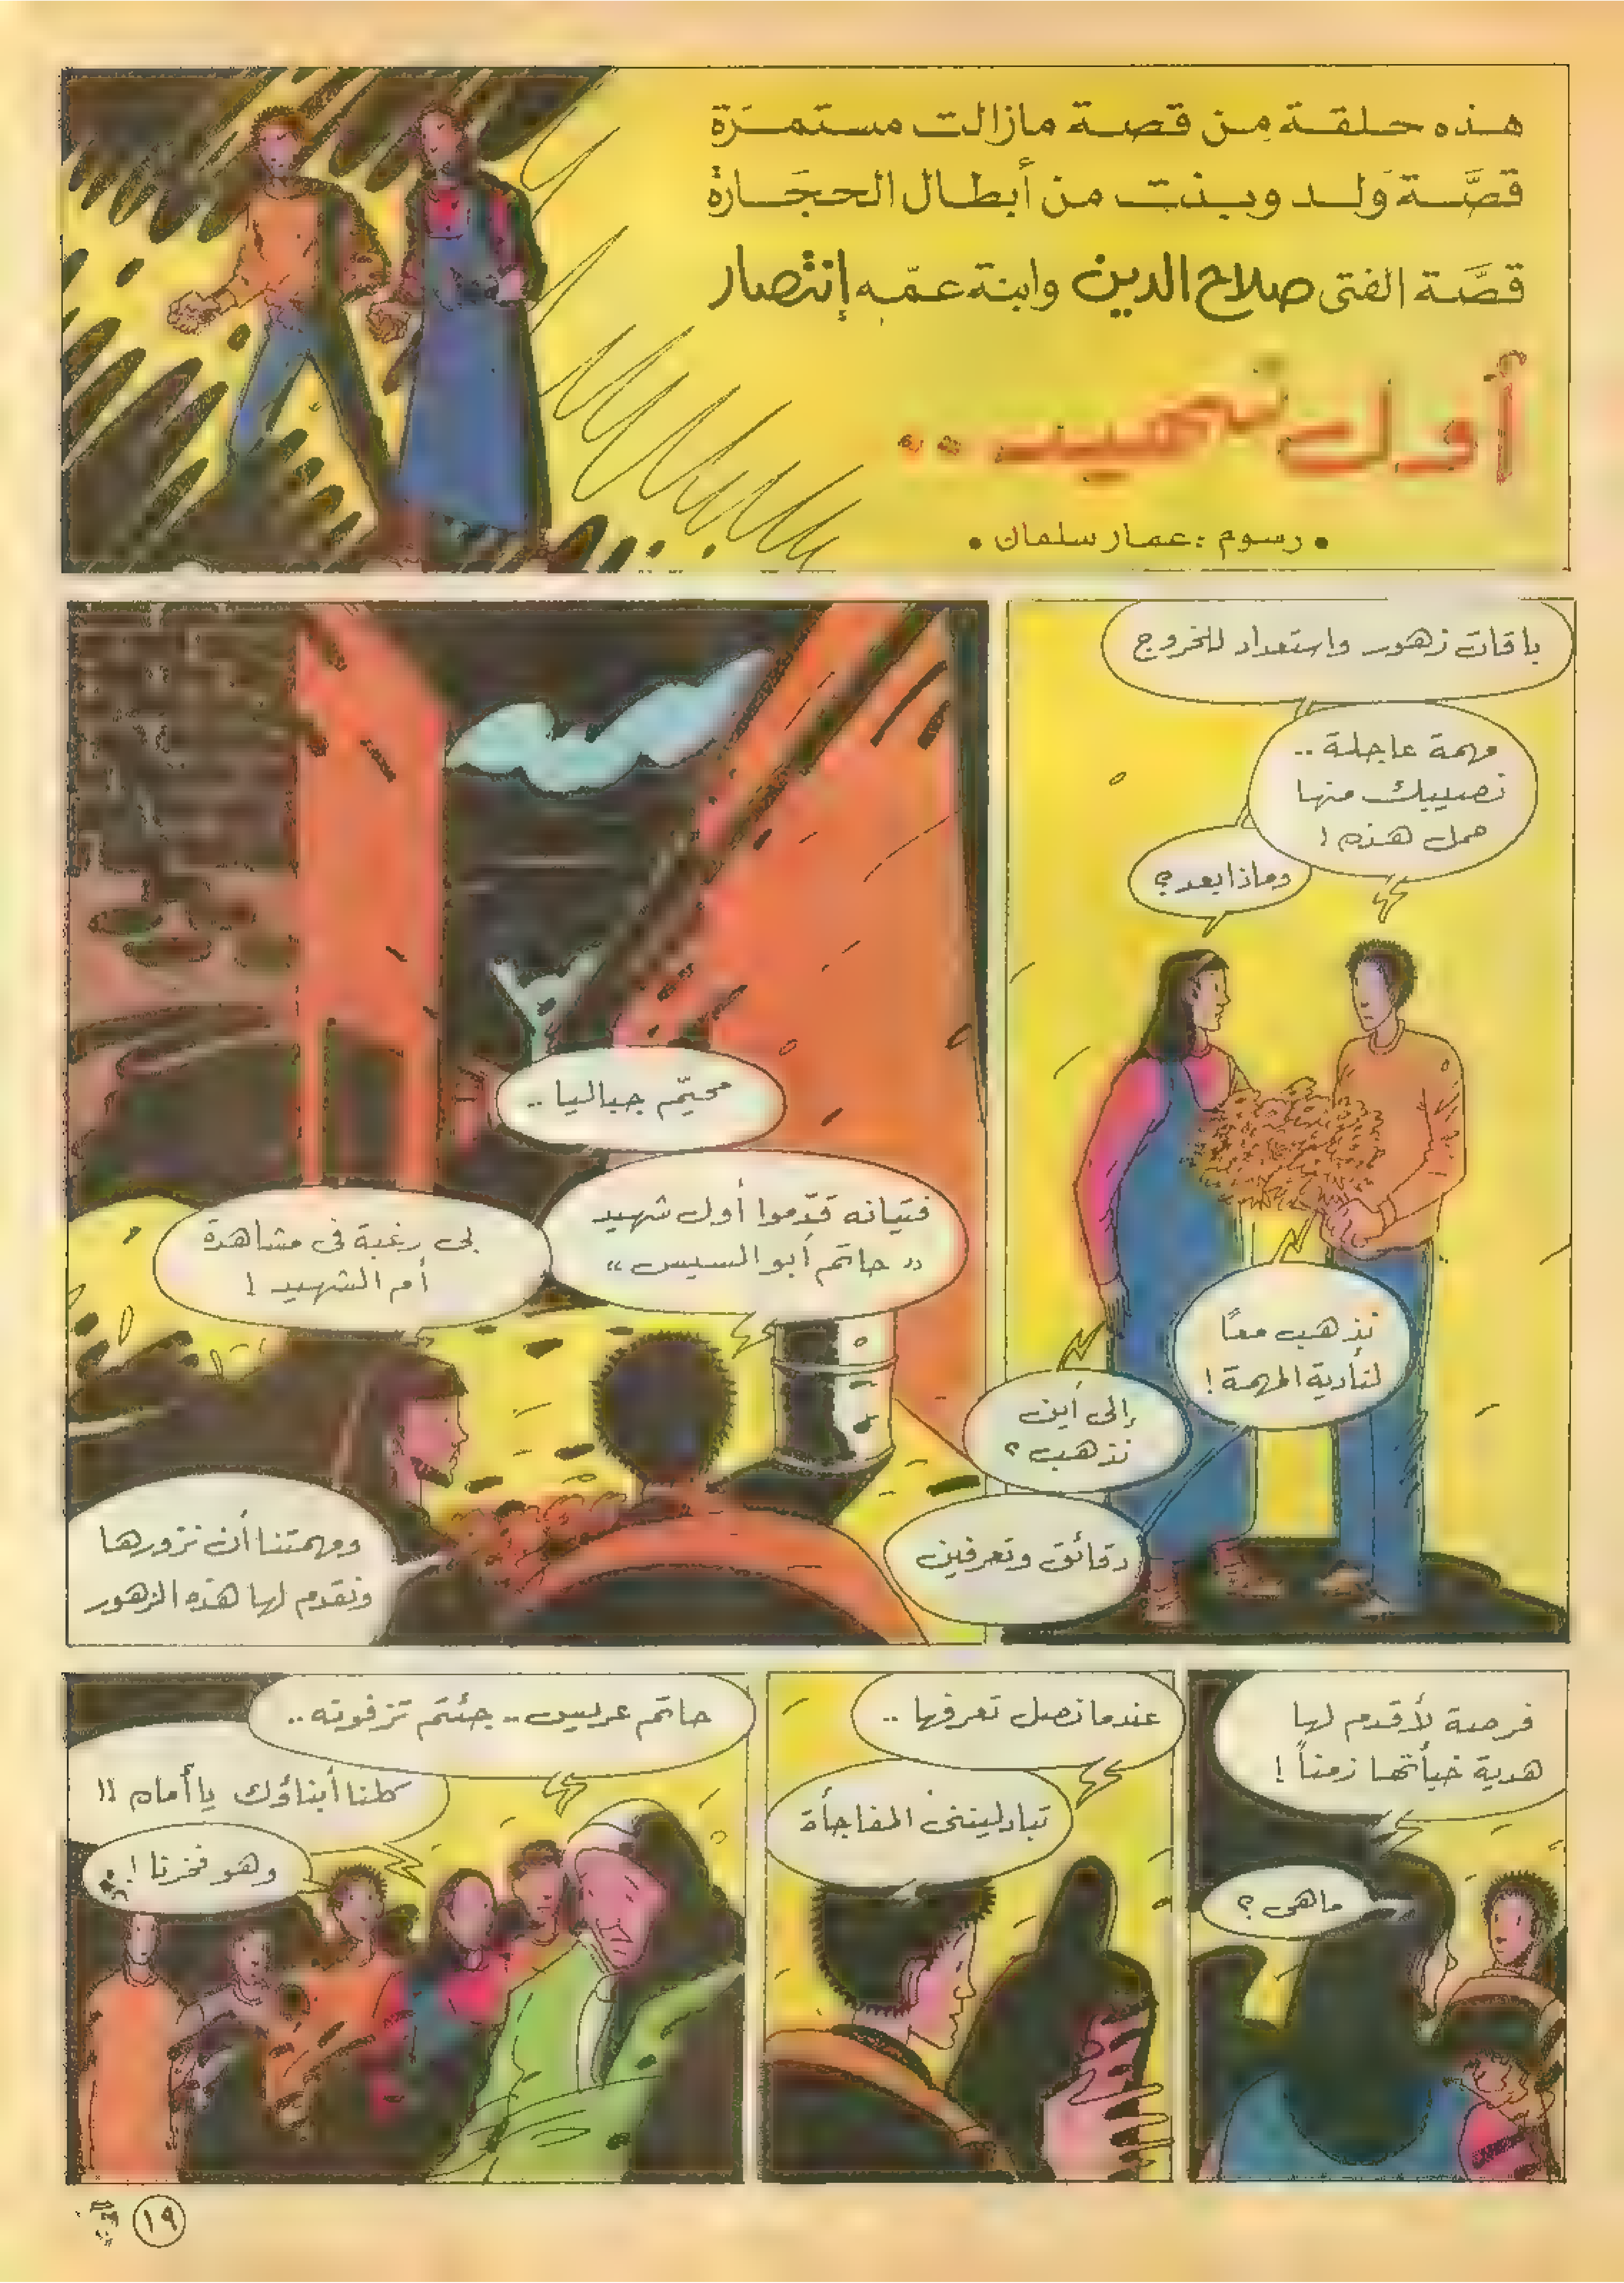 هذه حلقة من قصة مازالت مستمرّة
قصَّة وَلد وبنت من أبطال الحجَارة
قصَّة الفتى صلاح الدين وابنة عمّه إنتصار
أول شهيد ..
• رسوم : عمار سلمان •
باقات زهور واستعداد للخروج
مهمة عاجلة ..
نصيبك منها
حمل هذه !
وماذا بعد ؟
نذهب معاً
لتأدية المهمة !
إلى أين
نذهب ؟
دقائق وتعرفين
مخيّم جباليا ..
فتيانه قدّموا أول شهيد
« حاتم أبو السيس »
بي رغبة في مشاهدة
أم الشهيد !
ومهمتنا أن نزورها
ونقدم لها هذه الزهور
فرصة لأقدم لها
هدية خبأتها زمناً !
ماهى ؟
عندما نصل تعرفها ..
تبادلينى المفاجأة
حاتم عريس .. جئتم تزفونه ..
كلنا أبناؤك يا أمام !!
وهو فخرنا !
١٩